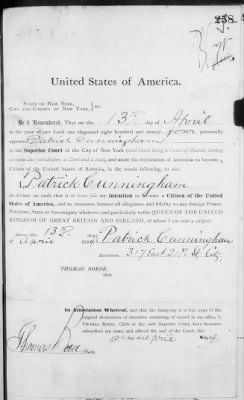 238
United States of America.
STATE OF NEW YORK,
CITY AND COUNTY OF NEW YORK, } ss:
Be it Remembered, That on the 13th day of April
in the year of our Lord one thousand eight hundred and ninety-four, personally
appeared Patrick Cunningham
the Superior Court of the City of New York (said Court being a Court of Record, having
common law jurisdiction, a Clerk and a Seal), and made his declaration of intention to become a
Citizen of the United States of America, in the words following, to wit:
I, Patrick Cunningham
do declare on oath that it is bona fide my intention to become a Citizen of the United
States of America, and to renounce forever all allegiance and fidelity to any foreign Prince,
Potentate, State or Sovereignty whatever, and particularly to the QUEEN OF THE UNITED
KINGDOM OF GREAT BRITAIN AND IRELAND, of whom I am now a subject.
Sworn this 13th day
of April 1894 Patrick Cunningham
Residence, 317 East 2 St City
THOMAS BOESE,
Clerk.
In Attestation Whereof, and that the foregoing is a true copy of the
original declaration of intention remaining of record in my office, I,
THOMAS BOESE, Clerk of the said Superior Court, have hereunto
subscribed my name and affixed the seal of the Court, this
13th day of April 1894
Thomas Boese
Clerk.